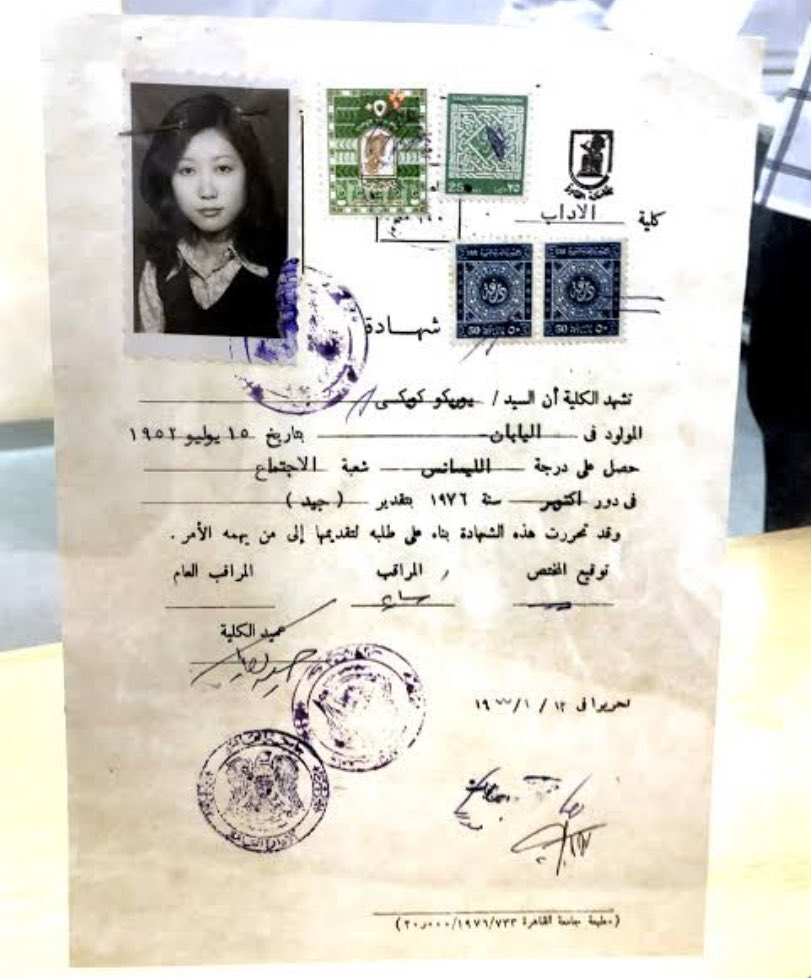 جامعة القاهرة
كلية الاداب
25 ٢٥
50 ٥٠
50 ٥٠
شهـــادة
تشهد الكلية أن السيد / يوريكو كويكى
المولود فى اليابان بتاريخ ١٥ يوليو ١٩٥٢
حصل على درجة الليسانس شعبة الاجتماع
فى دور اكتوبر سنة ١٩٧٦ بتقدير ( جيد )
وقد تحررت هذه الشهادة بناء على طلبه لتقديمها إلى من يهمه الأمر .
توقيع المختص المراقب المراقب العام
عميد الكلية
تحريرا فى ١٢ / ١ / ١٩
(مطبعة جامعة القاهرة ١٩٧٦/٧٣٣/٢٠٫٠٠٠)